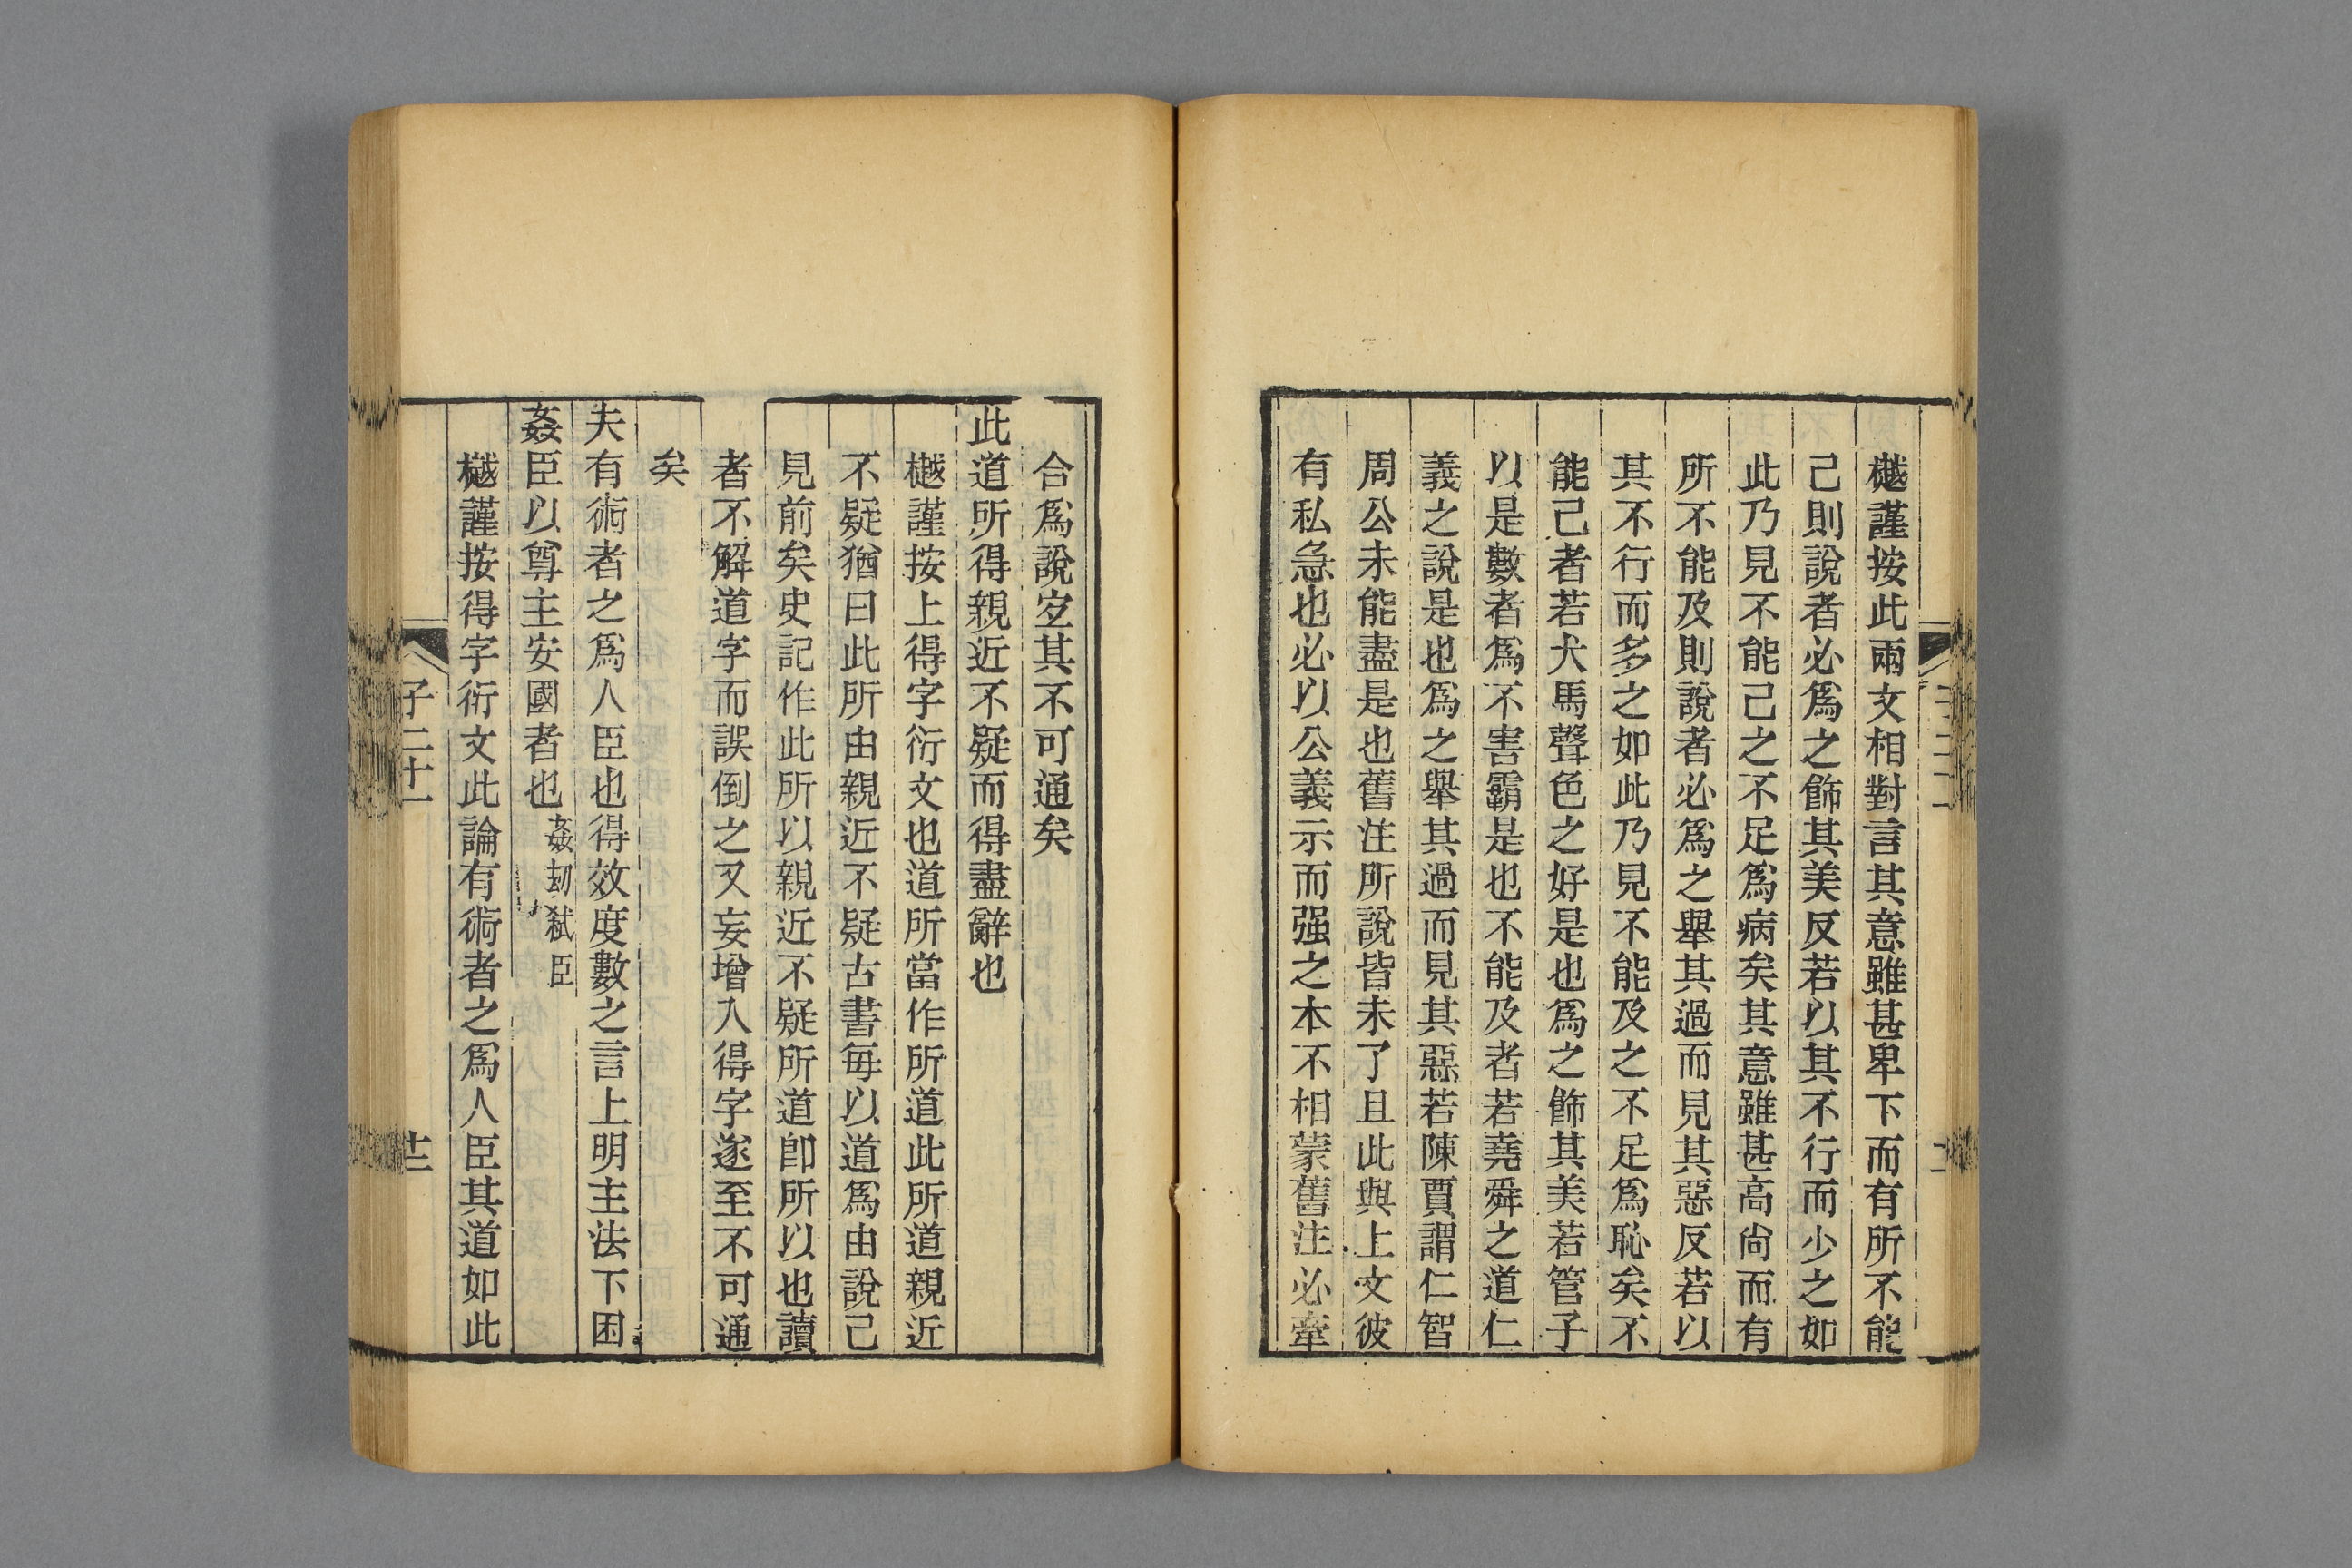 樾謹按此兩文相對言其意雖甚卑下而有所不能
己則說者必爲之飾其美反若以其不行而少之如
此乃見不能己之不足爲病矣其意雖甚高尙而有
所不能及則說者必爲之舉其過而見其惡反若以
其不行而多之如此乃見不能及之不足爲恥矣不
能己者若犬馬聲色之好是也爲之飾其美若管子
以是數者爲不害霸是也不能及者若堯舜之道仁
義之說是也爲之舉其過而見其惡若陳賈謂仁智
周公未能盡是也舊注所說皆未了且此與上文彼
有私急也必以公義示而强之本不相蒙舊注必牽
合爲說宐其不可通矣
此道所得親近不疑而得盡辭也
樾謹按上得字衍文也道所當作所道此所道親近
不疑猶曰此所由親近不疑古書每以道爲由說己
見前矣史記作此所以親近不疑所道卽所以也讀
者不解道字而誤倒之又妄增入得字遂至不可通
矣
夫有術者之爲人臣也得效度數之言上明主法下困
姦臣以尊主安國者也姦劫弒臣
樾謹按得字衍文此論有術者之爲人臣其道如此
子二十一